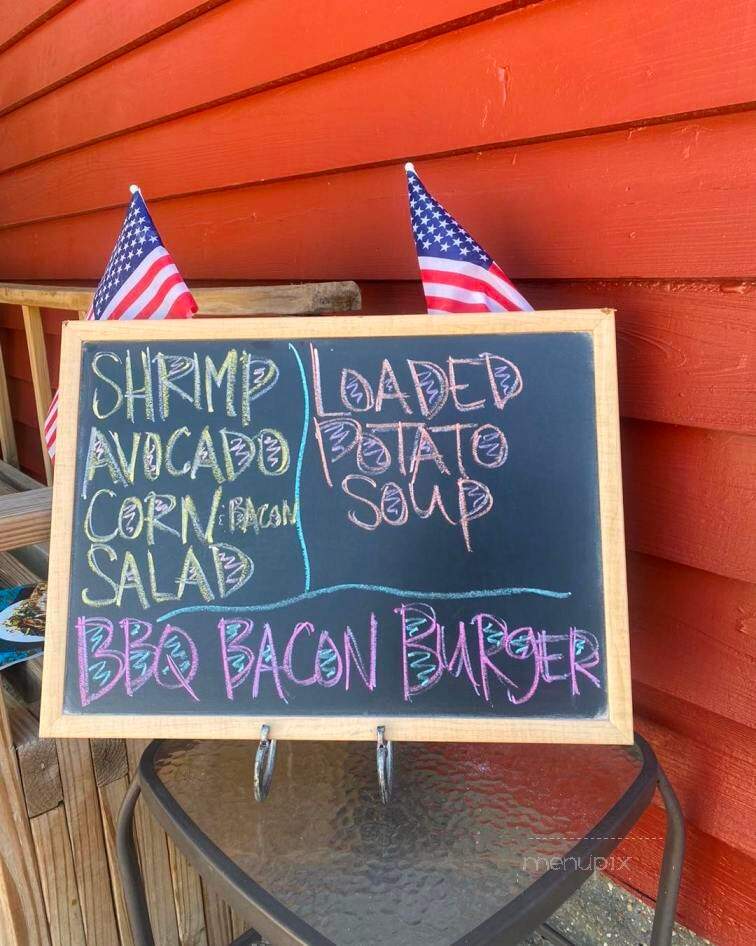 SHRIMP
AVOCADO
CORN & BACON
SALAD
LOADED
POTATO
SOUP
BBQ BACON BURGER
menupix